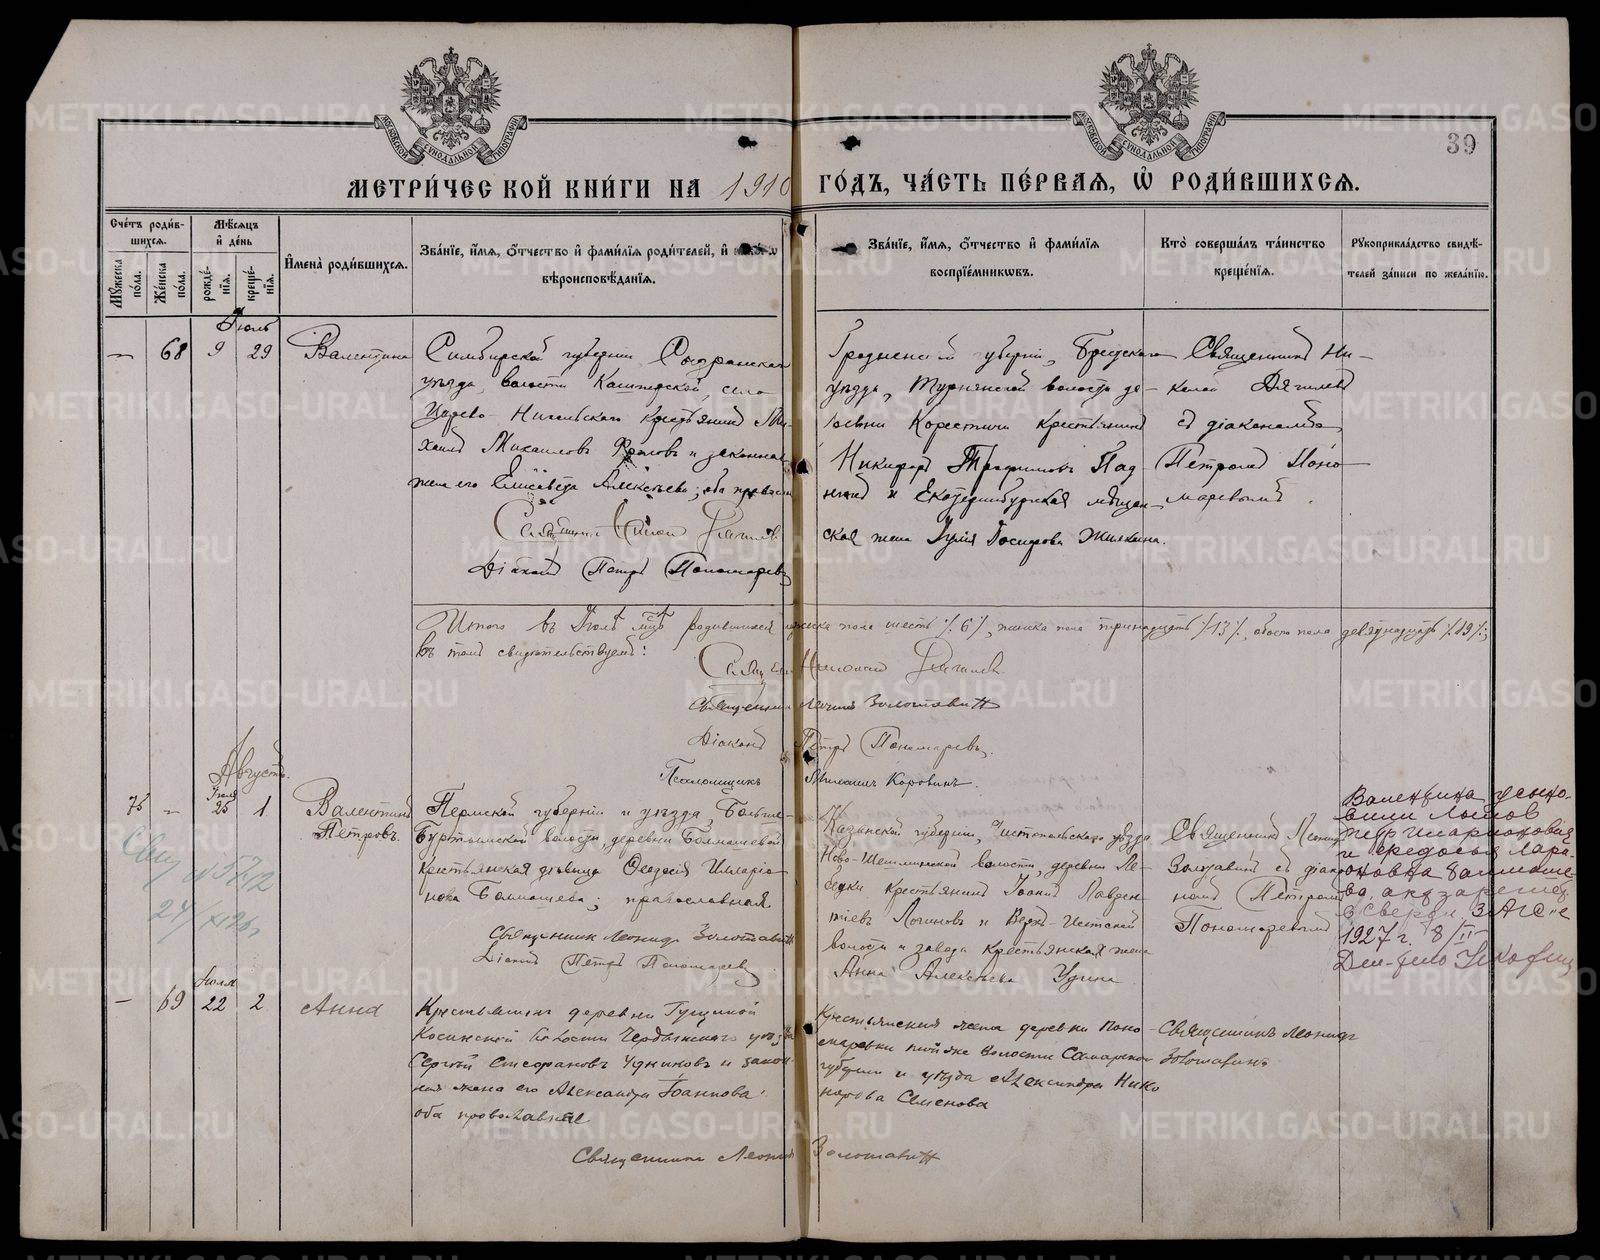 МОСКОВСКОЙ СѴНОДАЛЬНОЙ ТИПОГРАФІИ
МОСКОВСКОЙ СѴНОДАЛЬНОЙ ТИПОГРАФІИ
39
МЕТРИ́ЧЕСКОЙ КНИ́ГИ НА 1910 ГО́ДЪ, ЧА́СТЬ ПЕ́РВАЯ, Ѡ РОДИ́ВШИХСЯ.
Сче́тъ роди́в-
шихся.
Мѣ́сяцъ
и де́нь
Имена̀ роди́вшихся.
Зва́нїе, и́мя, о́тчество и фами́лїя роди́телей, и
вѣроисповѣ́данїя.
Зва́нїе, и́мя, о́тчество и фами́лїя
воспрїе́мниковъ.
Кто̀ соверша́лъ та́инство
креще́нїя.
Рукоприкла́дство свидѣ́-
телей за́писи по жела́нїю.
Мужеска по́ла.
Же́нска по́ла.
рожде́-
нїя.
креще́-
нїя.
Іюль
— 68 9 29 Валентина
Симбирской губерніи Сызранскаго
уѣзда, волости Канадерской, село
Царево-Никольскаго крестьянинъ Ми-
хаилъ Михаиловъ Фроловъ и законная
жена его Елисавета Алексѣева; оба правосл.
Священникъ Николай Дягилевъ
Діаконъ Петръ Пономаревъ
Гродненской губерніи, Брестскаго
уѣзда, Турнянской волости де-
ревни Корестичи крестьянинъ
Никифоръ Трофимовъ Пад-
и Екатеринбургская мѣщан-
ская жена Юлія Іосифова Жилкина.
Священникъ Ни-
колай Дягилевъ
съ діакономъ
Петромъ Поно-
маревымъ.
Итого въ Іюлѣ м-цѣ родившихся мужска пола шесть /.6/., женска пола тринадцать /.13/., обоего пола девятнадцать /.19/.;
въ томъ свидѣтельствуемъ:
Священникъ Николай Дягилевъ
Священникъ Леонидъ Золотавинъ
Діаконъ Петръ Пономаревъ.
Псаломщикъ Михаилъ Коровинъ.
Августъ.
75 — Іюля 25 1 Валентинъ
Петровъ.
Пермской губерніи и уѣзда, Больше-
Буртымской волости, деревни Баташевой
крестьянская дѣвица Феодосія Иларіо-
нова Баташева; православная.
Священникъ Леонидъ Золотавинъ
Діаконъ Петръ Пономаревъ
Казанской губерніи, Чистопольскаго уѣзда
Ново-Шешминской волости, деревни Ле-
бедки крестьянинъ Іоаннъ Лаврен-
тіевъ Логиновъ и Верхъ-Исетской
волости и завода крестьянская жена
Анна Алексѣева Удина
Священникъ Леонидъ
Золотавинъ съ діако-
номъ Петромъ
Пономаревымъ
Валентина усыно-
вили
и Федосья Лари-
оновна
в Сверд. ЗАГСе
1927 г. 8/III
24/XI 26г
— 69 Іюля 22 2 Анна
Крестьянинъ деревни
Косинской волости Чердынскаго уѣзда
Сергѣй Стефановъ Чудиновъ и закон-
ная жена его Александра Іоаннова
оба православные
Священникъ Леонидъ Золотавинъ
Крестьянская жена деревни Поно-
маревки волости Самарской
губерніи и уѣзда Александра Ника-
норова Семенова
Священникъ Леонидъ
Золотавинъ
METRIKI.GASO-URAL.RU